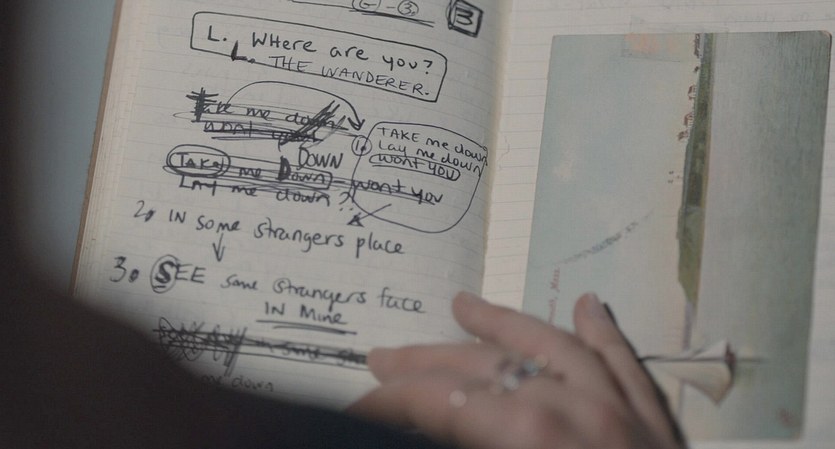 G-3
3
L. WHere are you?
L. THE WANDERER.
Take me down
wont you
TAKE me down
1. Lay me down
wont you
DOWN
Take me Down wont you
Lay me down?
2. IN some strangers place
3. SEE some strangers face
IN MINE
in some
me down